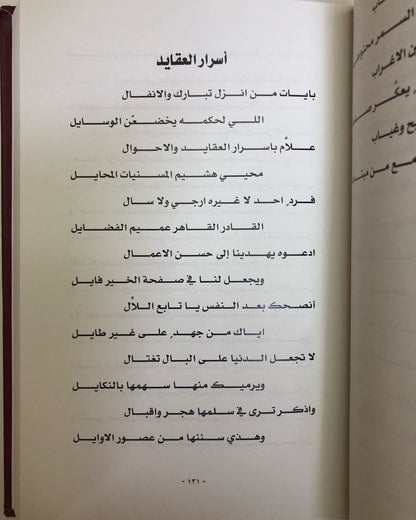 أسرار العقايد
بايات من انزل تبارك والانفال
اللي لحكمه يخضعن الوسايل
علاّم باسرار العقايد والاحوال
محيي هشيم المسنيات المحايل
فردٍ احد لا غيره ارجي ولا سال
القادر القاهر عميم الفضايل
ادعوه يهدينا إلى حسن الاعمال
ويجعل لنا في صفحة الخير فايل
أنصحك بعد النفس يا تابع اللال
اياك من جهدٍ على غير طايل
لا تجعل الدنيا على البال تغتال
ويرميك منها سهمها بالنكايل
واذكر ترى في سلمها هجر واقبال
وهذي سننها من عصور الاوايل
- ١٣١ -
اب
السمر محتو
ن الاغراب
يعكّر صد
ح وغياب
مع من مينا